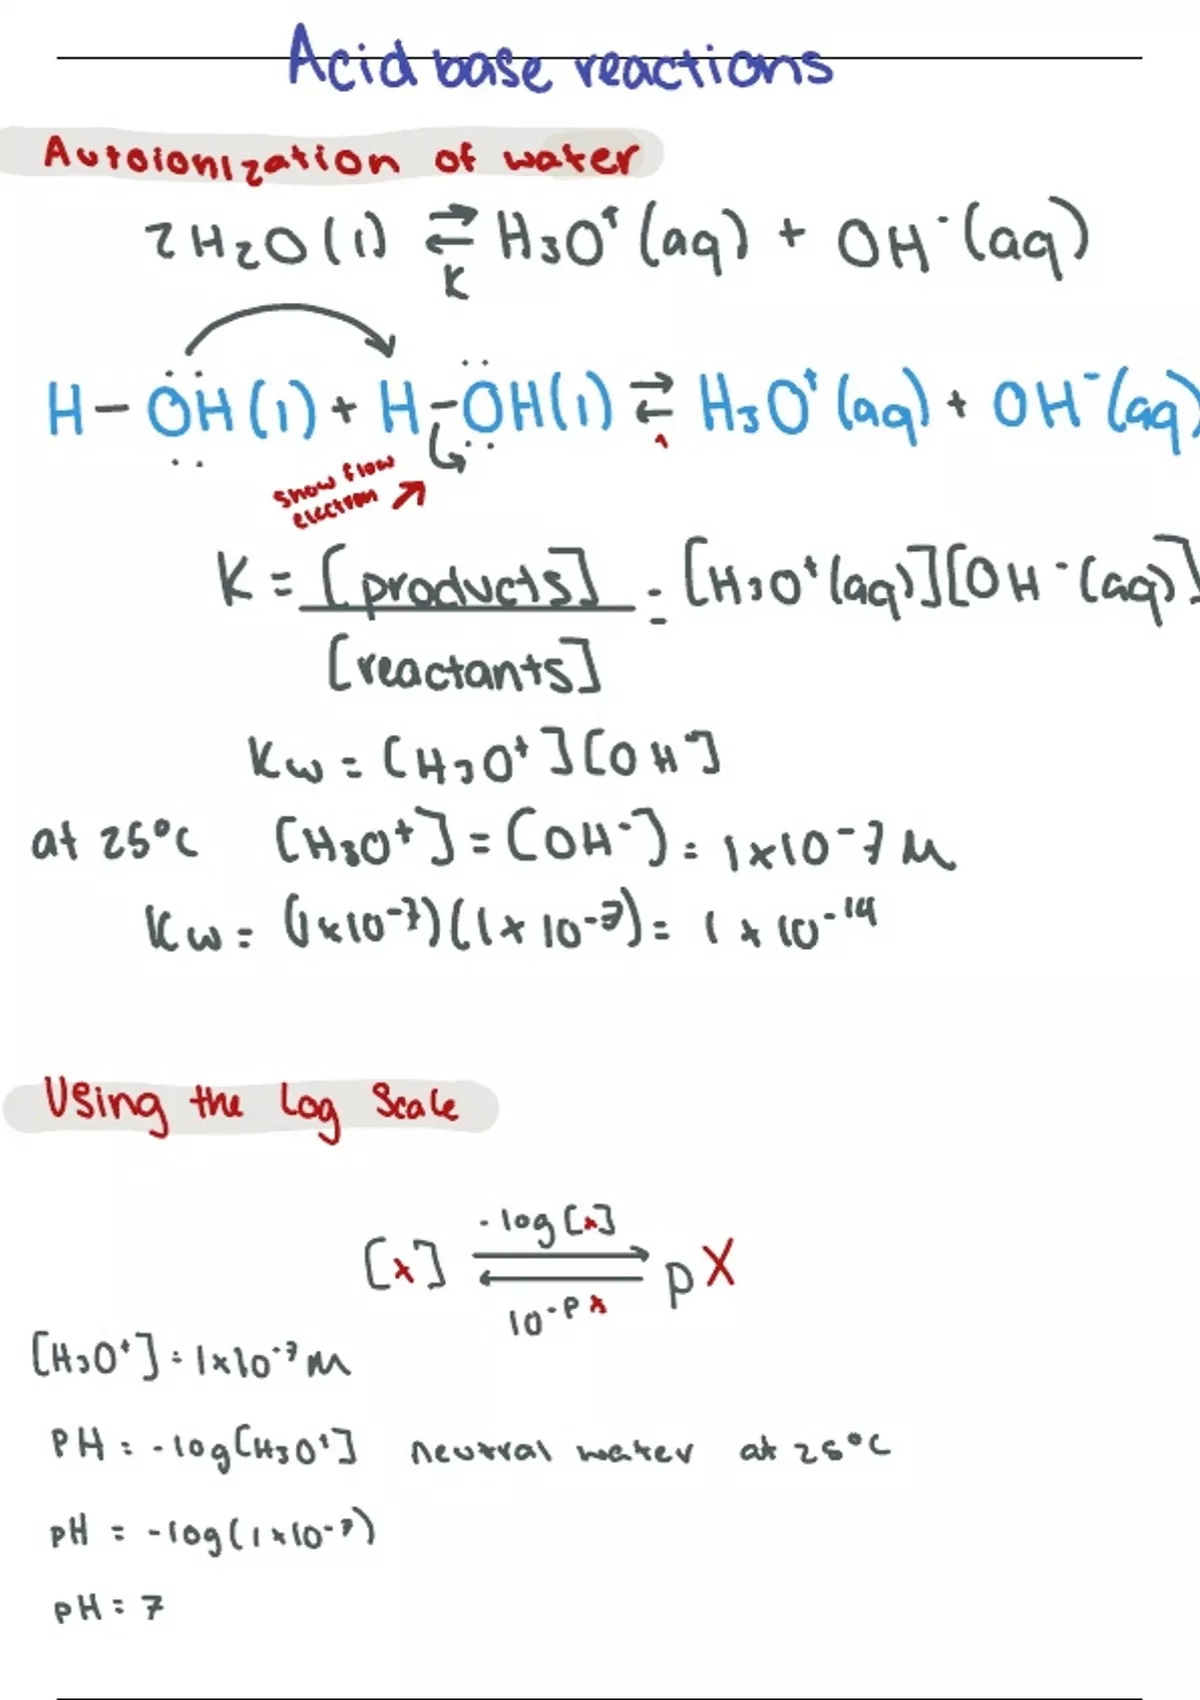 Acid base reactions
Autoionization of water
2H2O(l) ⇌ H3O⁺(aq) + OH⁻(aq)
K
H–ÖH(l) + H–ÖH(l) ⇌ H3O⁺(aq) + OH⁻(aq)
show flow
electron
K = [products] = [H3O⁺(aq)][OH⁻(aq)]
[reactants]
Kw = [H3O⁺][OH⁻]
at 25°C [H3O⁺] = [OH⁻] = 1x10⁻⁷ M
Kw = (1x10⁻⁷)(1x10⁻⁷) = 1x10⁻¹⁴
Using the Log Scale
-log[x]
[x] ⇌ pX
10⁻ᵖˣ
[H3O⁺] = 1x10⁻⁷ M
PH = -log[H3O⁺] neutral water at 25°C
pH = -log(1x10⁻⁷)
pH = 7